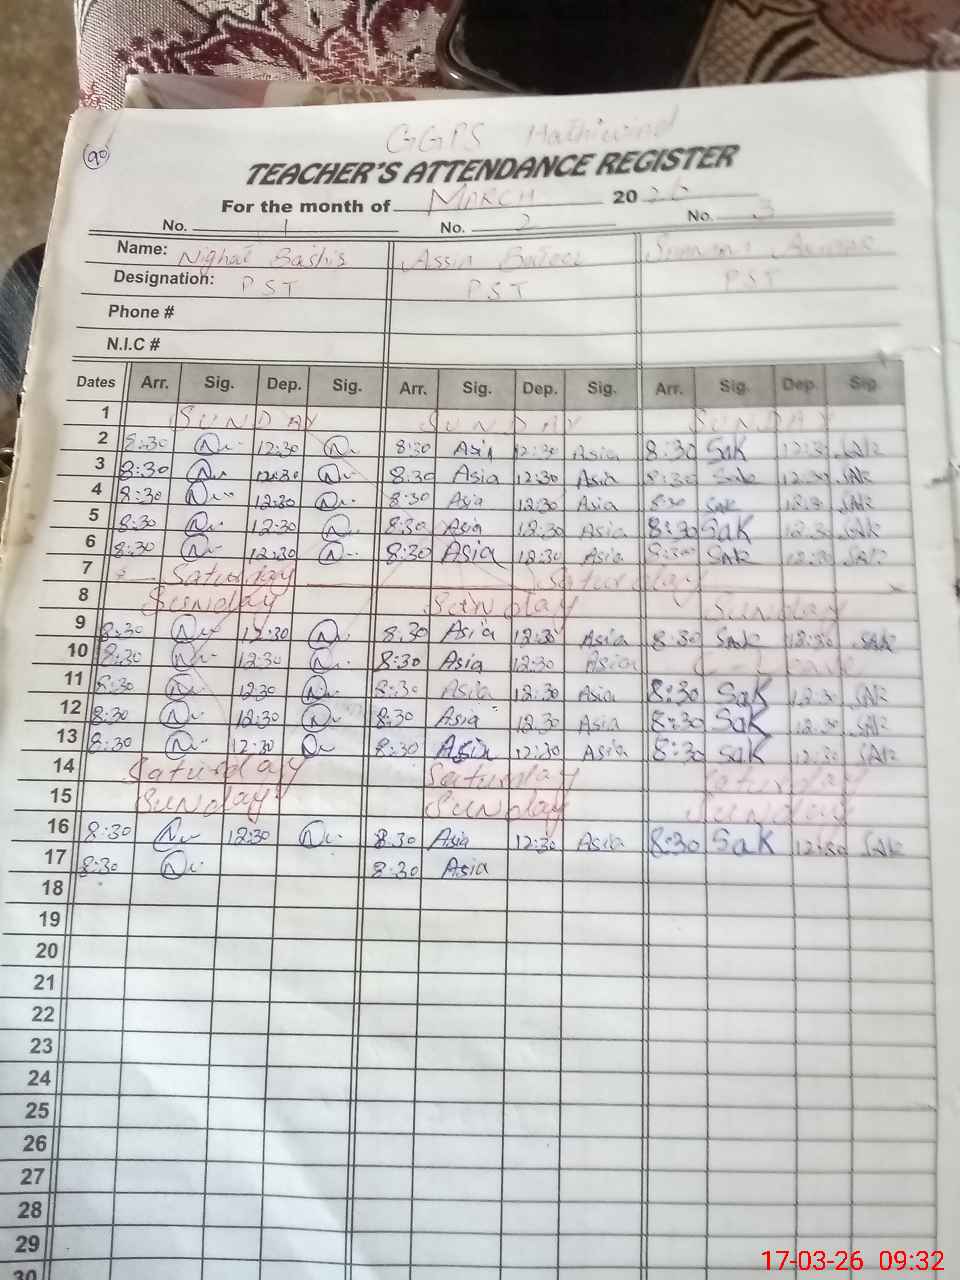 90
GGPS Hathiwind
TEACHER'S ATTENDANCE REGISTER
For the month of MARCH 2026
No. 1 No. 2 No. 3
Name: Nighat Bashir Assia
Designation: PST PST PST
Phone #
N.I.C #
Dates Arr. Sig. Dep. Sig. Arr. Sig. Dep. Sig. Arr. Sig. Dep. Sig.
1 SUNDAY SUNDAY SUNDAY
2 8:30 12:30 8:30 Asia 12:30 Asia 8:30 Sak 12:30 SAK
3 8:30 12:30 8:30 Asia 12:30 Asia 8:30 Sak 12:30 SAK
4 8:30 12:30 8:30 Asia 12:30 Asia 8:30 Sak 12:30 SAK
5 8:30 12:30 8:30 Asia 12:30 Asia 8:30 SAK 12:30 SAK
6 8:30 12:30 8:30 Asia 12:30 Asia 8:30 SAK 12:30 SAK
7 Saturday Saturday
8 Sunday Sunday Sunday
9 8:30 12:30 8:30 Asia 12:30 Asia 8:30 SAK 12:30 SAK
10 8:30 12:30 8:30 Asia 12:30 Asia
11 8:30 12:30 8:30 Asia 12:30 Asia 8:30 SaK 12:30 SAK
12 8:30 12:30 8:30 Asia 12:30 Asia 8:30 SaK 12:30 SAK
13 8:30 12:30 8:30 Asia 12:30 Asia 8:30 SaK 12:30 SAK
14 Saturday Saturday Saturday
15 Sunday Sunday Sunday
16 8:30 12:30 8:30 Asia 12:30 Asia 8:30 SaK 12:30 SAK
17 8:30 8:30 Asia
18
19
20
21
22
23
24
25
26
27
28
29
30
17-03-26 09:32